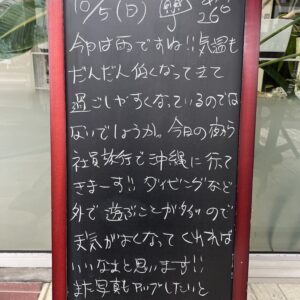 10/5(日)
26°
今日は雨ですね!!気温も
だんだん低くなってきて
過ごしやすくなっているのでは
ないでしょうか。今日の夜から
社員旅行で沖縄に行って
きまーす!!ダイビングなど
外で遊ぶことが多いので
天気がよくなってくれれば
いいなぁと思います!!
また写真もアップしたいと